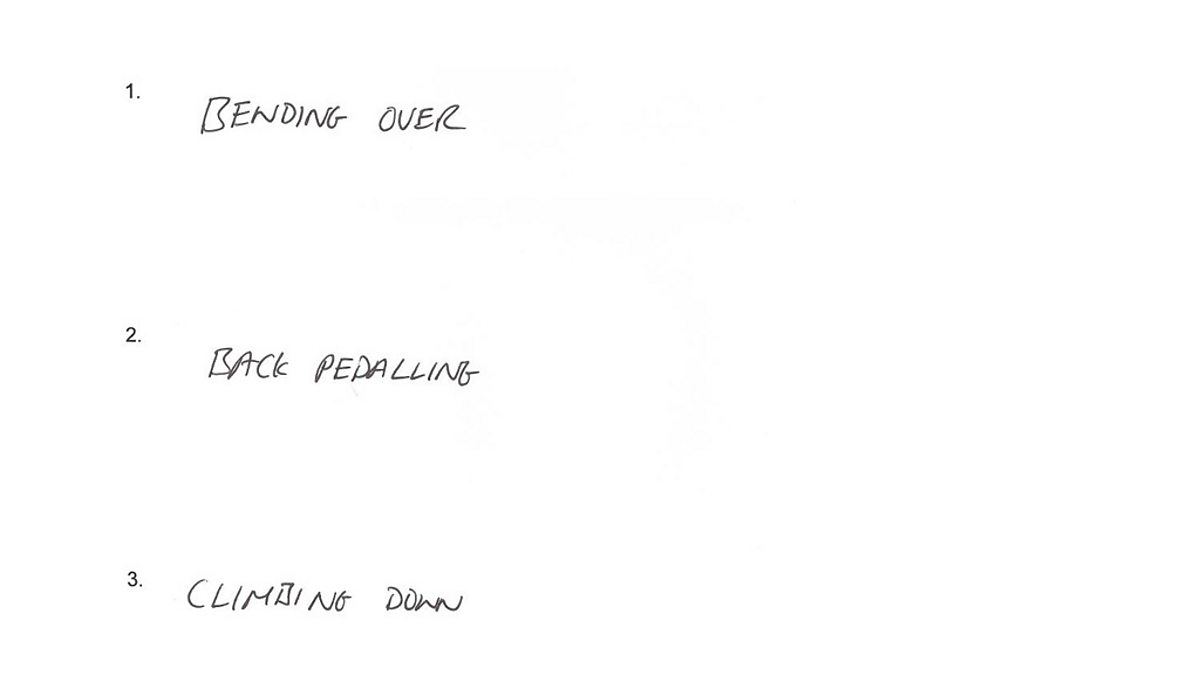 1. BENDING OVER
2. BACK PEDALLING
3. CLIMBING DOWN